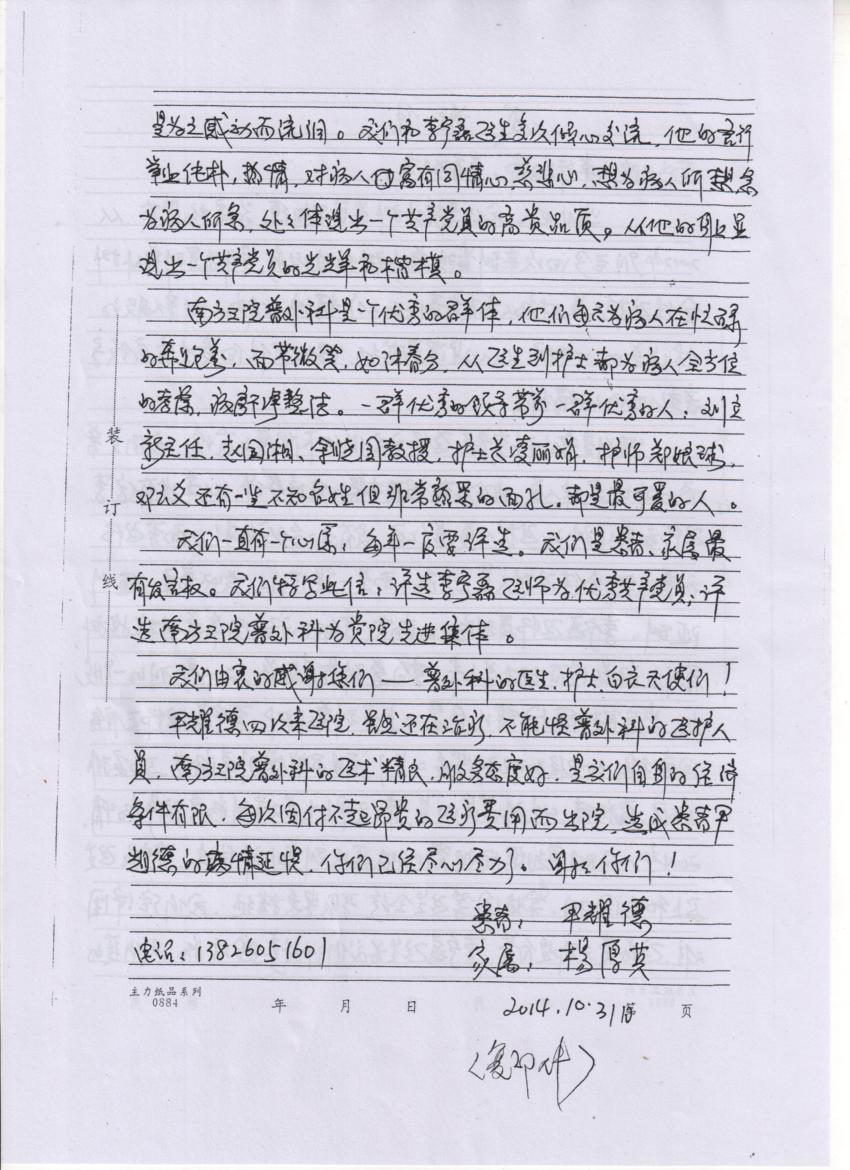 是为之感动而流泪。我们和李宁磊医生多次倾心交流，他的言行
举止纯朴，热情，对病人富有同情心慈悲心，想为病人所想急
为病人所急，处处体现出一个共产党员的高贵品质。从他的身上显
现出一个共产党员的光辉和楷模。
南方医院普外科是一个优秀的群体，他们每天为病人在忙碌
的奔跑着，面带微笑，如沐春分，从医生到护士都为病人全方位
的考虑，病房净整洁。一群优秀的领导带着一群优秀的人：刘立
新主任，赵国湘、李晓国教授，护士长凌丽娟，护师郑娘球，
邓云文还有一些不知名姓但非常熟悉的面孔，都是最可爱的人。
我们一直有一个心愿，每年一度要评选。我们是患者、家属最
有发言权。我们特写此信，评选李宁磊医师为优秀共产党员，评
选南方医院普外科为贵院先进集体。
我们由衷的感谢您们——普外科的医生，护士，白衣天使们！
耀德四次来医院，虽然还在治疗，不能怪普外科的医护人
员，南方医院普外科的医术精良，服务态度好，是我们自身的经济
条件有限，每次因付不起昂贵的医疗费用而出院，造成患者
耀德的病情延误，你们已经尽心尽力了。谢谢你们！
患者：耀德
电话：13826051601
家属：杨厚英
主力纸品系列
0884
年 月 日
2014.10.31 第 页
装
订
线